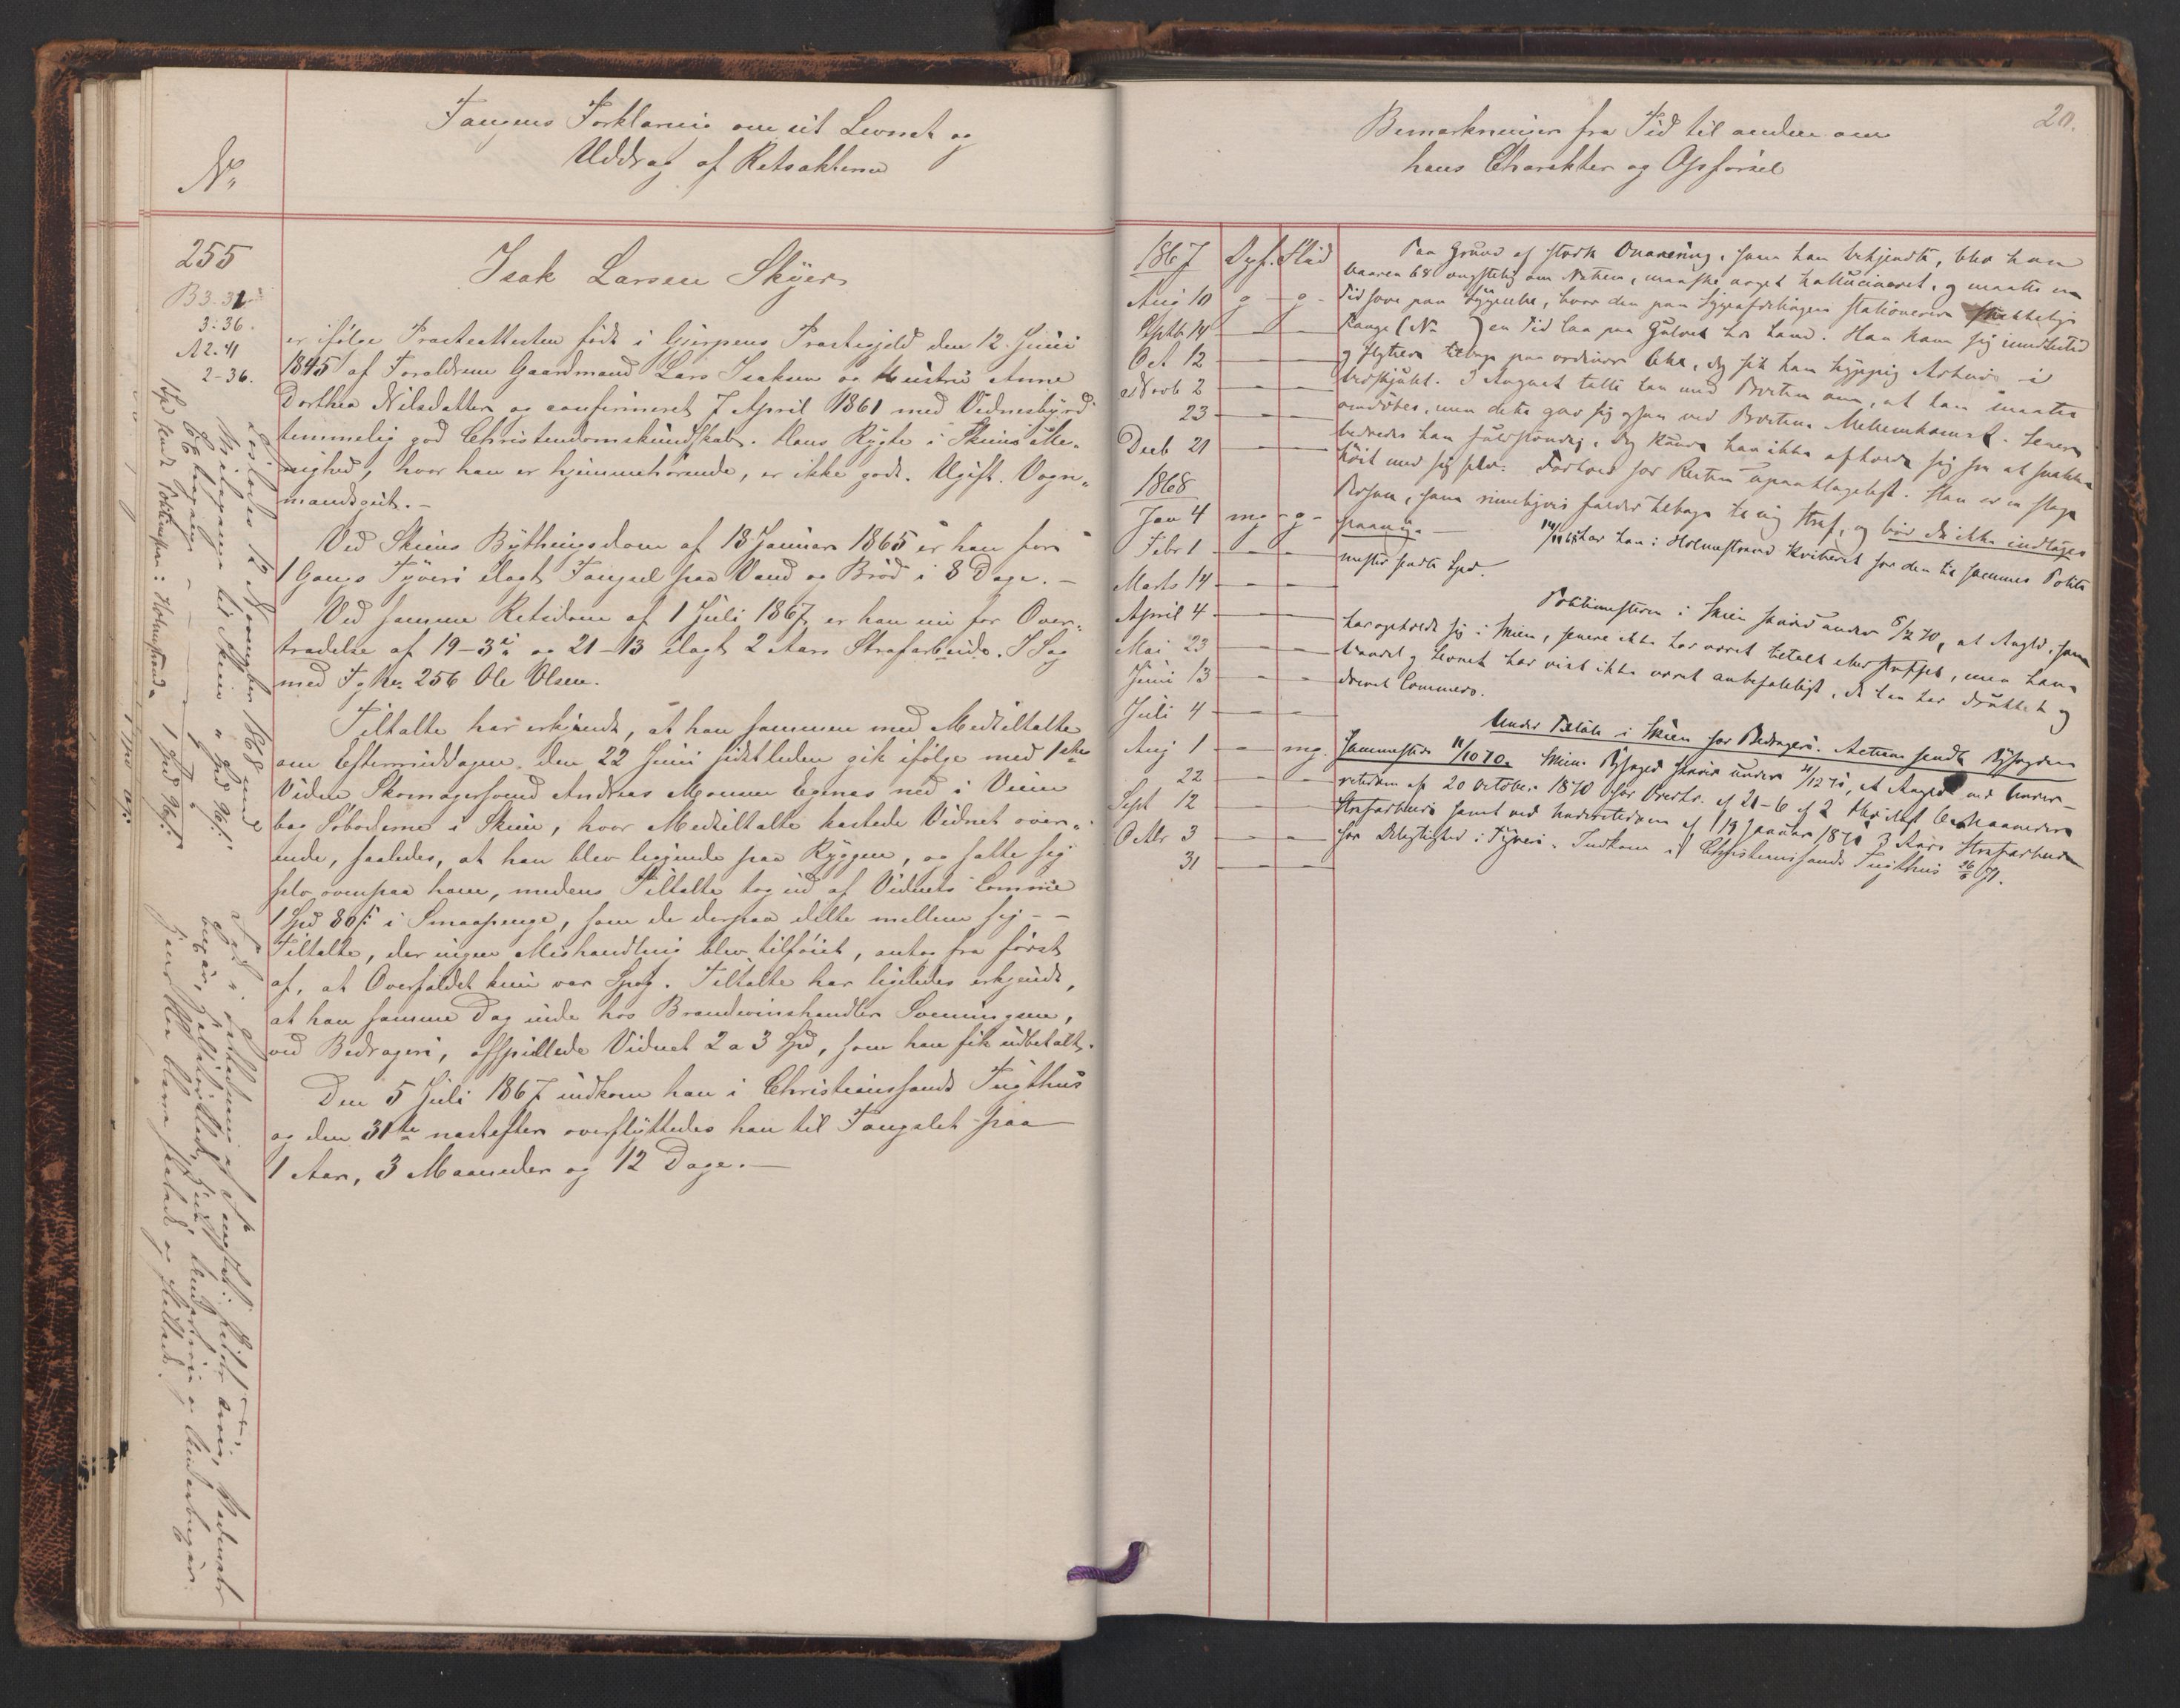 Fangens Forklaring om sit Levnet og
Uddrag af Retsakterne
No
255
B3.31
3:36.
A2.41
2-36.
Isak Larsen Skyer
er ifølge Præsteattesten født i Gjerpens Præstegjeld den 12 Juni
1845 af Forældrene Gaardmand Lars Isaksen og Hustru Anne
Dorthea Nilsdatter og confirmeret 7 April 1861 med Vidnesbyrd
temmelig god Christendomskundskab. Hans Rygte i Skiens Me-
nighed, hvor han er hjemmehørende, er ikke godt. Ugift. Vogn-
mandsgut.-
Ved Skiens Bythingsdom af 18 Januar 1865 er han for
1 Gangs Tyveri ilagt Fængsel paa Vand og Brød i 8 Dage.-
Ved samme Retsdom af 1 Juli 1867 er han nu for Over-
trædelse af 19-3 og 21-13 ilagt 2 Aars Strafarbeide. I Sag
med Fg No 256 Ole Olsen.
Tiltalte har erkjendt, at han sammen med Medtiltalte
om Eftermiddagen den 22 Juni sidstleden gik ifølge med 1ste
Vidne Skomagersvend Andreas Monsen Egenæs ned i Veien
bag Søboderne i Skien, hvor Medtiltalte kastede Vidnet over-
ende, saaledes, at han blev liggende paa Ryggen, og satte sig
selv ovenpaa ham, medens Tiltalte tog ud af Vidnets Lomme
1 Spd 80 ß i Smaapenge, som de derpaa delte mellem sig --
Tiltalte, der ingen Mishandling blev tilføiet, antog fra først
af, at Overfaldet kun var Spøg. Tiltalte har ligeledes erkjendt,
at han samme Dag inde hos Brændevinshandler Svenningsen,
ved Bedrageri, afspillede Vidnet 2 a 3 Spd, som han fik udbetalt.
Den 5 Juli 1867 indkom han i Christianssands Tugthus
og den 31te næstefter overflyttedes han til Fængslet paa
1 Aar, 3 Maaneder og 12 Dage.-
Løslodes 12 November 1868 med
Bemærkninger fra Tid til anden om
hans Charakter og Opførsel
20.
1867 Opf. Flid
Aug 10 g - g -
Septb 14 - -
Oct 12 - -
Novb 2 - -
23 - -
Decb 21 - -
1868
Jan 4 mg - g -
Febr 1 - -
Marts 14 - -
April 4 - -
Mai 23 - -
Juni 13 - -
Juli 4 - -
Aug 1 - mg.
22 - -
Sept 12 - -
Octbr 3 - -
31 - -
Paa Grund af stærk Onanering, som han bekjendte, blev han
vaaren 68 ængstelig om Natten, maaske noget hallucineret, og maatte en
Tid sove paa Sygecelle, hvor den paa Sygeafdelingen stationerede
Fange (No ) en Tid laa paa Gulvet hos ham. Han kom sig imidlertid
og flyttede tilbage paa ordinær Celle, dog fik han hyppig Arbeide i
Vedskjulet. I August talte han med Præsten om, at han maatte
omdøbes, men dette gav sig ogsaa ved Præstens Mellemkomst. Senere
bedredes han fuldstændig, dog kunde han ikke afholde sig fra at snakke
høit med sig selv. Forhold for Resten upaaklageligt. Han er en slags
Person, som rimeligvis falder tilbage til ny Straf, og bør da ikke indtages
paany.- 14/11 68 har han i Holmestrand kvitteret for den til sammes Politi
mester sendte Spd.
Politimesteren i Skien skrev under 5/2 70, at Angld. som
har opholdt sig i Skien, senere ikke har været tiltalt eller straffet, men hans
Vandel og Levnet har vist ikke været anbefaleligt, da han har drukket og
drevet Commers.
Under Tiltale i Skien for Bedrageri. Acten sendt Byfogden
sammesteds 11/10 70. Skiens Byfoged skrev under 21/12 70, at Angld ved Under-
retsdom af 20 October 1870 for Overtr. af 21-6 cf 2 blev ilagt 6 Maaneders
Strafarbeide samt ved Underretsdom af 19 Januar 1871 3 Aars Strafarbeide
for Delagtighed i Tyveri. Indkom i Christianssands Tugthus 26/6 71.